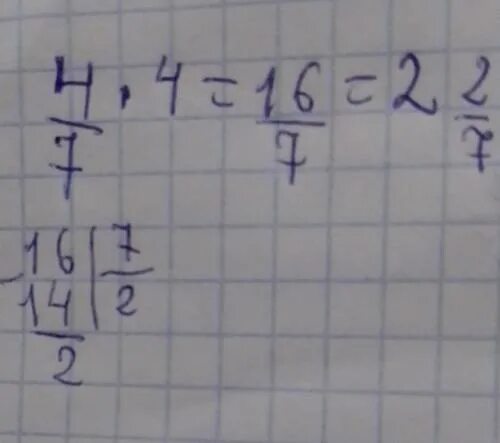 4/7 · 4 = 16/7 = 2 2/7
-16 | 7
14 | 2
2